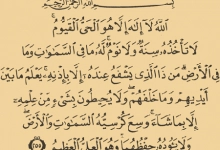 بسم الله الرحمن الرحيم
الله لا إله إلا هو الحي القيوم
لا تأخذه سنة ولا نوم له ما في السموات وما
في الأرض من ذا الذي يشفع عنده إلا بإذنه يعلم ما بين
أيديهم وما خلفهم ولا يحيطون بشيء من علمه
إلا بما شاء وسع كرسيه السموات والأرض
ولا يؤده حفظهما وهو العلي العظيم ٢٥٥